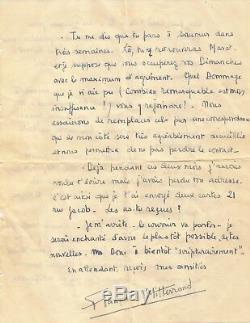 - Tu me dis que tu pars à Saumur dans
très semaines. Là, tu y retrouveras Marot.
et je suppose que vous occuperez vos Dimanches
avec le maximum d'agrément. Quel dommage
que je n'aie pu (combien remarquable est mon
insuffisance !) vous y rejoindre ! Nous
essaierons de remplacer cela par une correspondance
qui de mon côté sera très agréablement accueillie
et nous permettra de ne pas perdre le contact -
- Déjà pendant ces deux mois j'aurais
voulu t'écrire mais j'avais perdu ton adresse.
c'est ainsi que je t'ai envoyé deux cartes 21
rue Jacob. les as-tu reçues ?
- Je m'arrête. Le courrier va partir - je
serai enchanté d'avoir le plus tôt possible, tes
nouvelles. Donc à bientôt "scripturairement".
En attendant, reçois mes amitiés
François Mitterrand